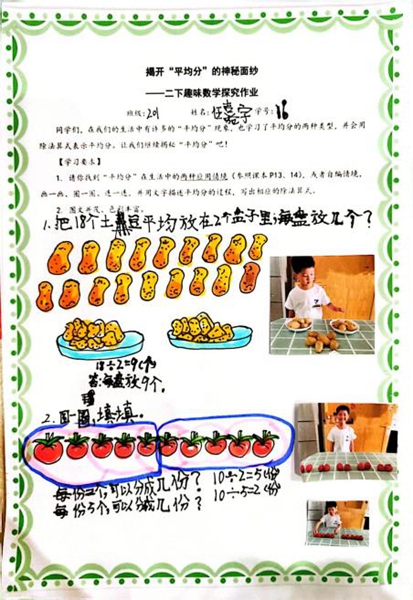 揭开“平均分”的神秘面纱
——二下趣味数学探究作业
班级: 201 姓名: 任嘉宇 学号: 16
同学们, 在我们的生活中有许多的“平均分”现象, 也学习了平均分的两种类型, 并会用
除法算式表示平均分, 让我们继续揭秘“平均分”吧!
【学习要求】
1. 请你找到“平均分”在生活中的两种应用情境 (参照课本P13、14), 或者自编情境,
画一画、圈一圈、连一连, 并用文字描述平均分的过程, 写出相应的除法算式。
2. 图文并茂, 色彩丰富。
1. 把18个土豆平均放在2个盘子里,每盘放几个?
18÷2=9(个)
答:每盘放9个。
2. 圈一圈,填填。
每份二个,可以分成几份? 10÷2=5(份)
每份5个,可以分成几份? 10÷5=2(份)